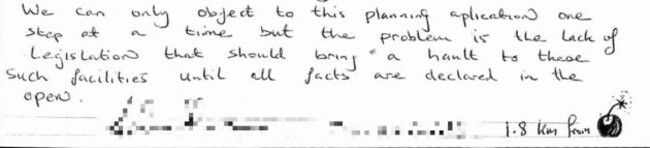 We can only object to this planning aplication one
step at a time but the problem is the lack of
Legislation that should bring a hault to these
such facilities until all facts are declared in the
open.
1.8 km from